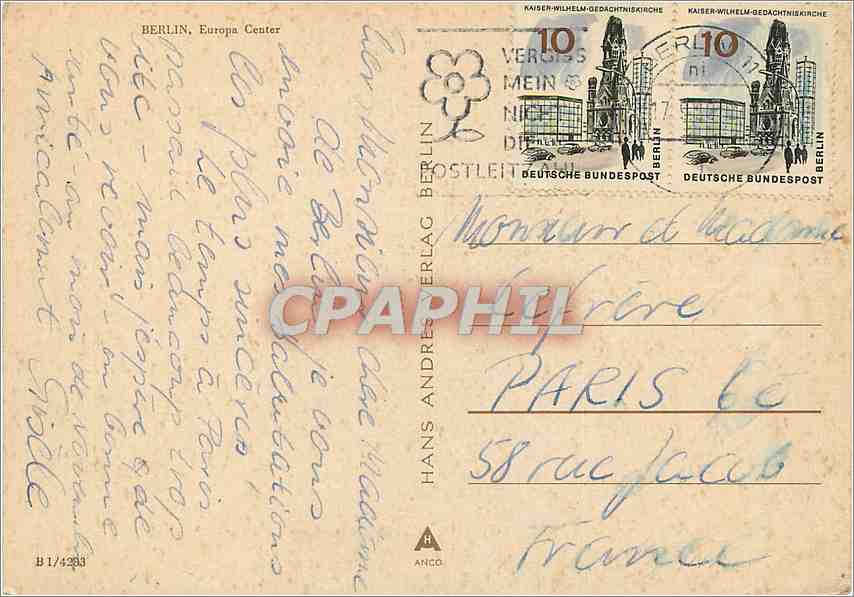 BERLIN, Europa Center
Cher Monsieur, chère Madame
de Berlin je vous
envoie mes salutations
les plus sincères,
Le temps à Paris
passait beaucoup trop
vite - mais j'espère de
vous revoir - en bonne
santé - au mois de Novembre
Amicalement Gisèle
B 1/4293
HANS ANDRES VERLAG BERLIN
ANCO
KAISER-WILHELM-GEDÄCHTNISKIRCHE
10
DEUTSCHE BUNDESPOST
BERLIN
KAISER-WILHELM-GEDÄCHTNISKIRCHE
10
DEUTSCHE BUNDESPOST
BERLIN
VERGISS
MEIN
NICHT
DIE
POSTLEITZAHL
BERLIN
Monsieur et Madame
Lefrère
PARIS 6e
58 rue Jacob
France
CPAPHIL